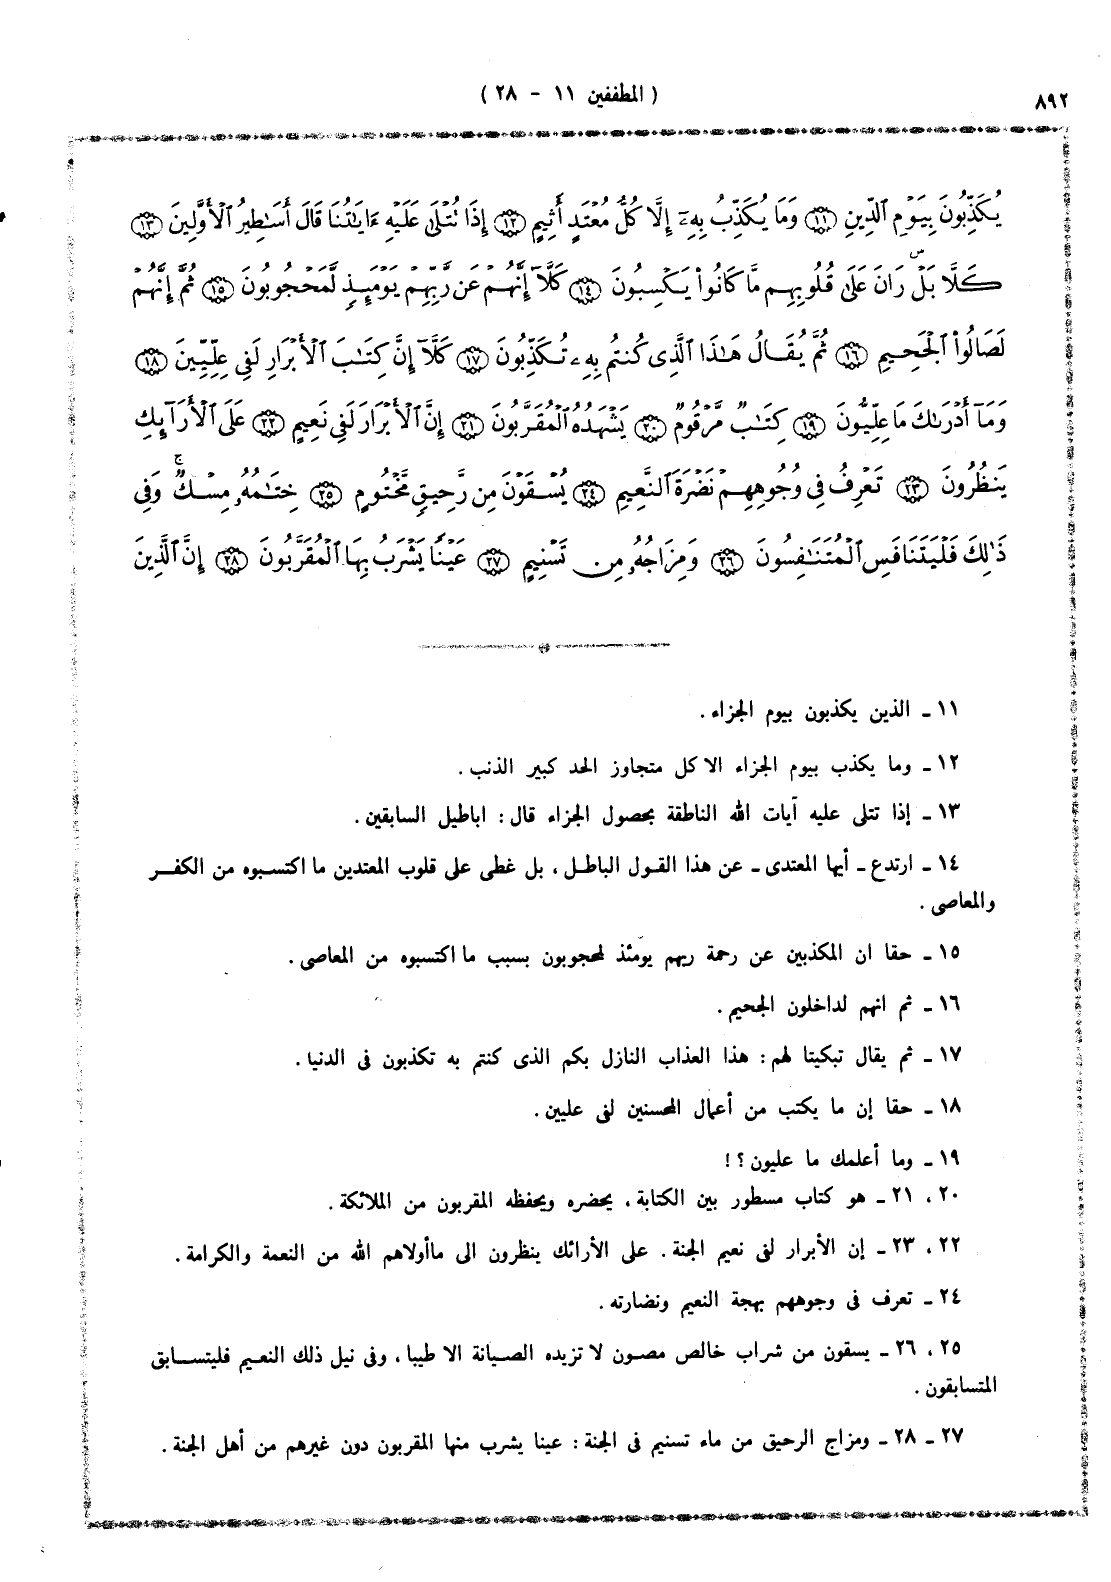 ٨٩٢
( المطففين ١١ - ٢٨ )
يُكَذِّبُونَ بِيَوْمِ ٱلدِّينِ ﴿١١﴾ وَمَا يُكَذِّبُ بِهِۦٓ إِلَّا كُلُّ مُعْتَدٍ أَثِيمٍ ﴿١٢﴾ إِذَا تُتْلَىٰ عَلَيْهِ ءَايَٰتُنَا قَالَ أَسَٰطِيرُ ٱلْأَوَّلِينَ ﴿١٣﴾
كَلَّا بَلْ ۜ رَانَ عَلَىٰ قُلُوبِهِم مَّا كَانُوا۟ يَكْسِبُونَ ﴿١٤﴾ كَلَّآ إِنَّهُمْ عَن رَّبِّهِمْ يَوْمَئِذٍ لَّمَحْجُوبُونَ ﴿١٥﴾ ثُمَّ إِنَّهُمْ
لَصَالُوا۟ ٱلْجَحِيمِ ﴿١٦﴾ ثُمَّ يُقَالُ هَٰذَا ٱلَّذِى كُنتُم بِهِۦ تُكَذِّبُونَ ﴿١٧﴾ كَلَّآ إِنَّ كِتَٰبَ ٱلْأَبْرَارِ لَفِى عِلِّيِّينَ ﴿١٨﴾
وَمَآ أَدْرَىٰكَ مَا عِلِّيُّونَ ﴿١٩﴾ كِتَٰبٌ مَّرْقُومٌ ﴿٢٠﴾ يَشْهَدُهُ ٱلْمُقَرَّبُونَ ﴿٢١﴾ إِنَّ ٱلْأَبْرَارَ لَفِى نَعِيمٍ ﴿٢٢﴾ عَلَى ٱلْأَرَآئِكِ
يَنظُرُونَ ﴿٢٣﴾ تَعْرِفُ فِى وُجُوهِهِمْ نَضْرَةَ ٱلنَّعِيمِ ﴿٢٤﴾ يُسْقَوْنَ مِن رَّحِيقٍ مَّخْتُومٍ ﴿٢٥﴾ خِتَٰمُهُۥ مِسْكٌ ۚ وَفِى
ذَٰلِكَ فَلْيَتَنَافَسِ ٱلْمُتَنَٰفِسُونَ ﴿٢٦﴾ وَمِزَاجُهُۥ مِن تَسْنِيمٍ ﴿٢٧﴾ عَيْنًا يَشْرَبُ بِهَا ٱلْمُقَرَّبُونَ ﴿٢٨﴾ إِنَّ ٱلَّذِينَ
١١ ـ الذين يكذبون بيوم الجزاء .
١٢ ـ وما يكذب بيوم الجزاء الا كل متجاوز الحد كبير الذنب .
١٣ ـ إذا تتلى عليه آيات الله الناطقة بحصول الجزاء قال : اباطيل السابقين .
١٤ ـ ارتدع ـ أيها المعتدى ـ عن هذا القول الباطل ، بل غطى على قلوب المعتدين ما اكتسبوه من الكفر
والمعاصى .
١٥ ـ حقا ان المكذبين عن رحمة ربهم يومئذ لمحجوبون بسبب ما اكتسبوه من المعاصى .
١٦ ـ ثم انهم لداخلون الجحيم .
١٧ ـ ثم يقال تبكيتا لهم : هذا العذاب النازل بكم الذى كنتم به تكذبون فى الدنيا .
١٨ ـ حقا إن ما يكتب من أعمال المحسنين لفى عليين .
١٩ ـ وما أعلمك ما عليون ؟ !
٢٠ ، ٢١ ـ هو كتاب مسطور بين الكتابة ، يحضره ويحفظه المقربون من الملائكة .
٢٢ ، ٢٣ ـ إن الأبرار لفى نعيم الجنة . على الأرائك ينظرون الى ماأولاهم الله من النعمة والكرامة .
٢٤ ـ تعرف فى وجوههم بهجة النعيم ونضارته .
٢٥ ، ٢٦ ـ يسقون من شراب خالص مصون لا تزيده الصيانة الا طيبا ، وفى نيل ذلك النعيم فليتسابق
المتسابقون .
٢٧ ـ ٢٨ ـ ومزاج الرحيق من ماء تسنيم فى الجنة : عينا يشرب منها المقربون دون غيرهم من أهل الجنة .